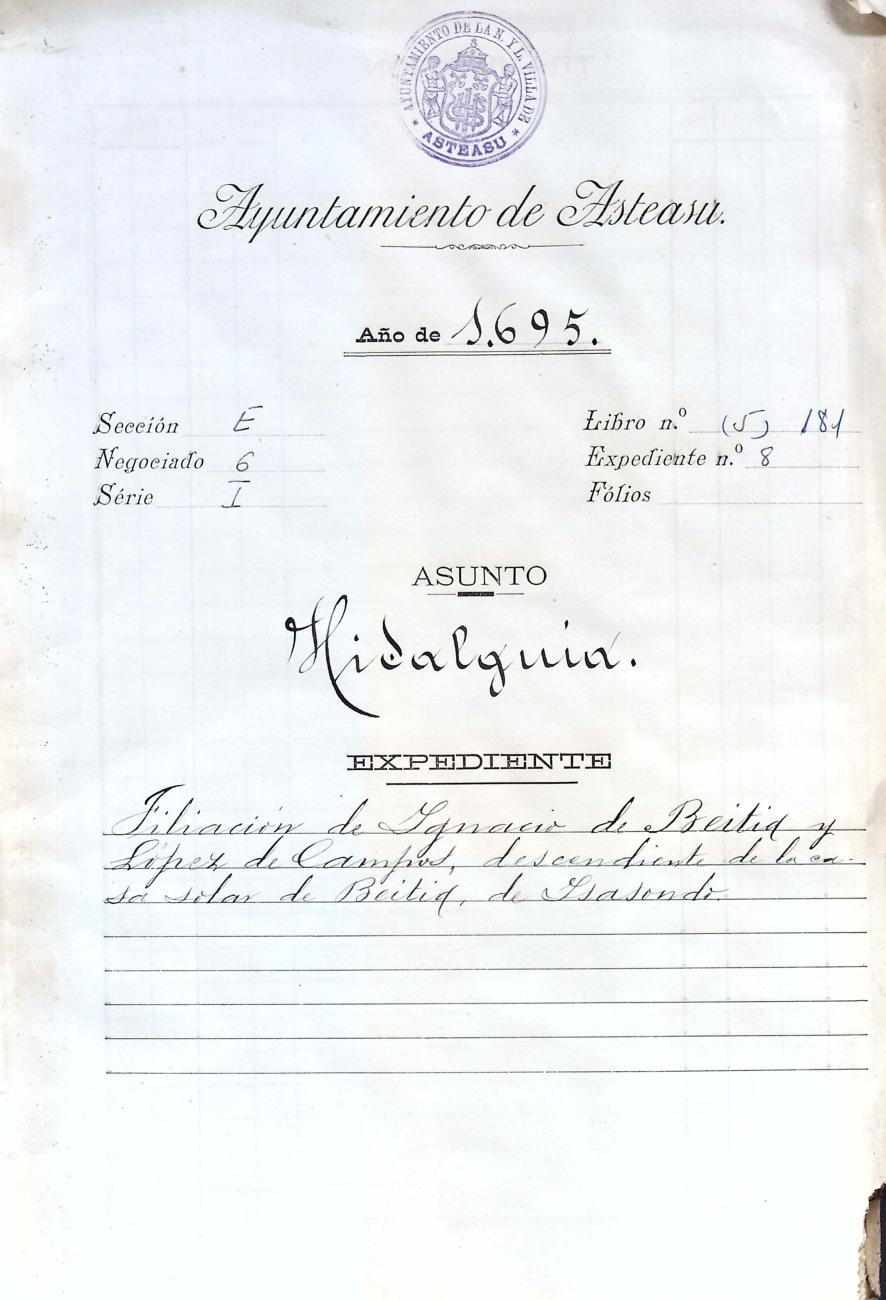 AYUNTAMIENTO DE LA N. Y L. VILLA DE
* ASTEASU *
Ayuntamiento de Asteasu.
Año de 1.695.
Sección E
Libro n.º (5) 181
Negociado 6
Expediente n.º 8
Série I
Fólios
ASUNTO
Hidalguia.
EXPEDIENTE
Filiación de Ignacio de Beitia y
López de Campos, descendiente de la ca-
sa solar de Beitia, de Isasondo.